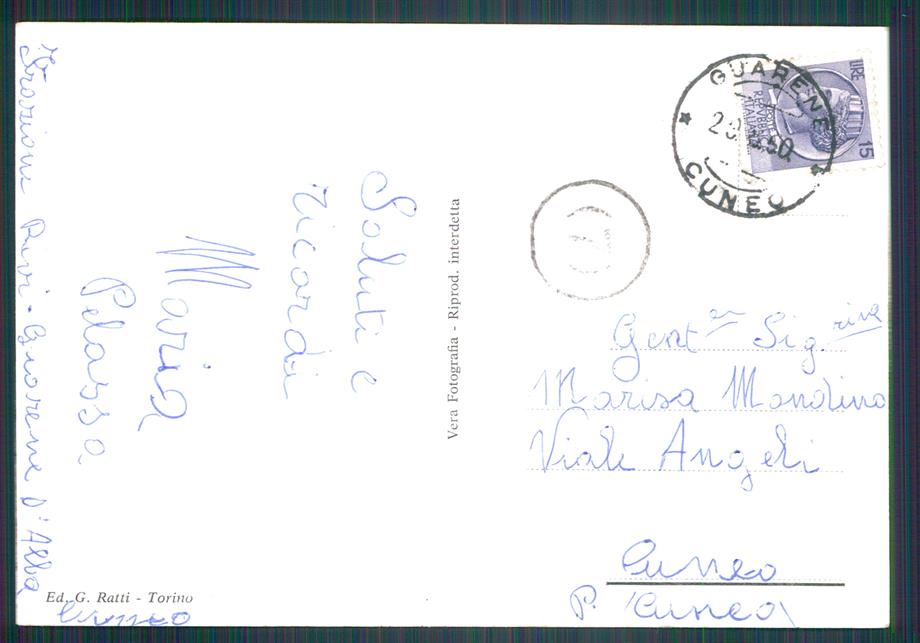 Saluti e
ricordi
Maria
Pelassa
Frazione Rivi - Guarene D'Alba
Cuneo
Ed. G. Ratti - Torino
Vera Fotografia - Riprod. interdetta
GUARENE
CUNEO
LIRE 15
POSTE
REPVBBLICA
ITALIANA
Gent.ma Sig.rina
Marisa Mondino
Viale Angeli
Cuneo
P. Cuneo